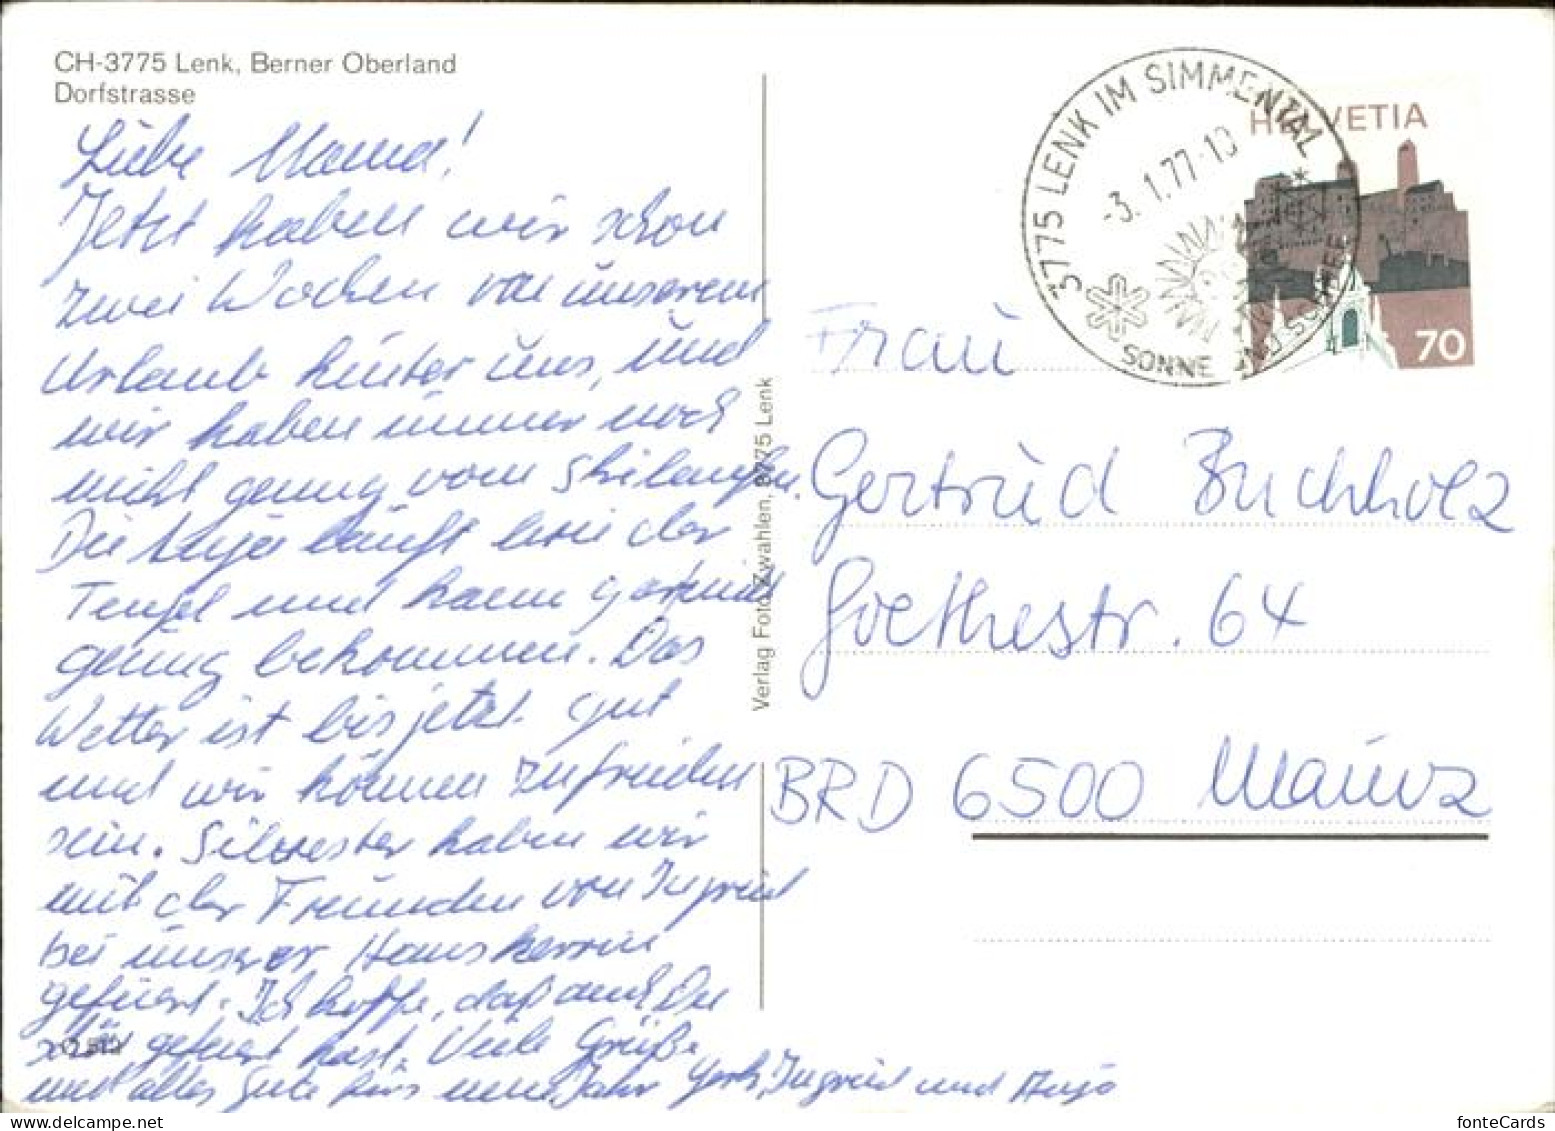 CH-3775 Lenk, Berner Oberland
Dorfstrasse
Liebe Mama!
Jetzt haben wir schon
zwei Wochen von unserem
Urlaub hinter uns, und
wir haben immer noch
nicht genug vom Skilaufen
Die Anja läuft wie der
Teufel und kann gar nicht
genug bekommen. Das
Wetter ist bis jetzt gut
und wir können zufrieden
sein. Silvester haben wir
mit der Freundin von Ingrid
bei unserer Hausherrin
gefeiert. Ich hoffe, daß auch Du
schön gefeiert hast. Viele Grüße
und alles Gute fürs neue Jahr Ingrid und Anja
Verlag Foto Zwahlen, 3775 Lenk
3775 LENK IM SIMMENTAL
-3.1.77-10
SONNE UND SCHNEE
HELVETIA
70
Frau
Gertrud Buchholz
Goethestr. 64
BRD 6500 Mainz
fonteCards